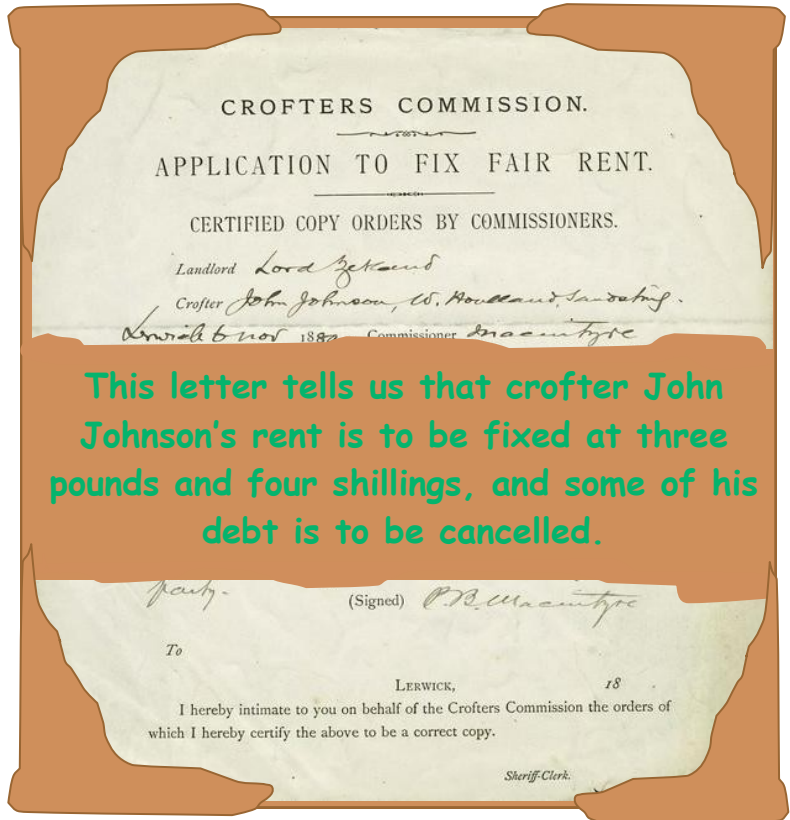 CROFTERS COMMISSION.
APPLICATION TO FIX FAIR RENT.
CERTIFIED COPY ORDERS BY COMMISSIONERS.
Landlord Lord Zetland
Crofter John Johnson, W. Houlland, Sandsting.
Lerwick 6 Nov 1889 Commissioner Macintyre
This letter tells us that crofter John
Johnson's rent is to be fixed at three
pounds and four shillings, and some of his
debt is to be cancelled.
party.
(Signed) P.B. Macintyre
To
LERWICK, 18 .
I hereby intimate to you on behalf of the Crofters Commission the orders of
which I hereby certify the above to be a correct copy.
Sheriff-Clerk.